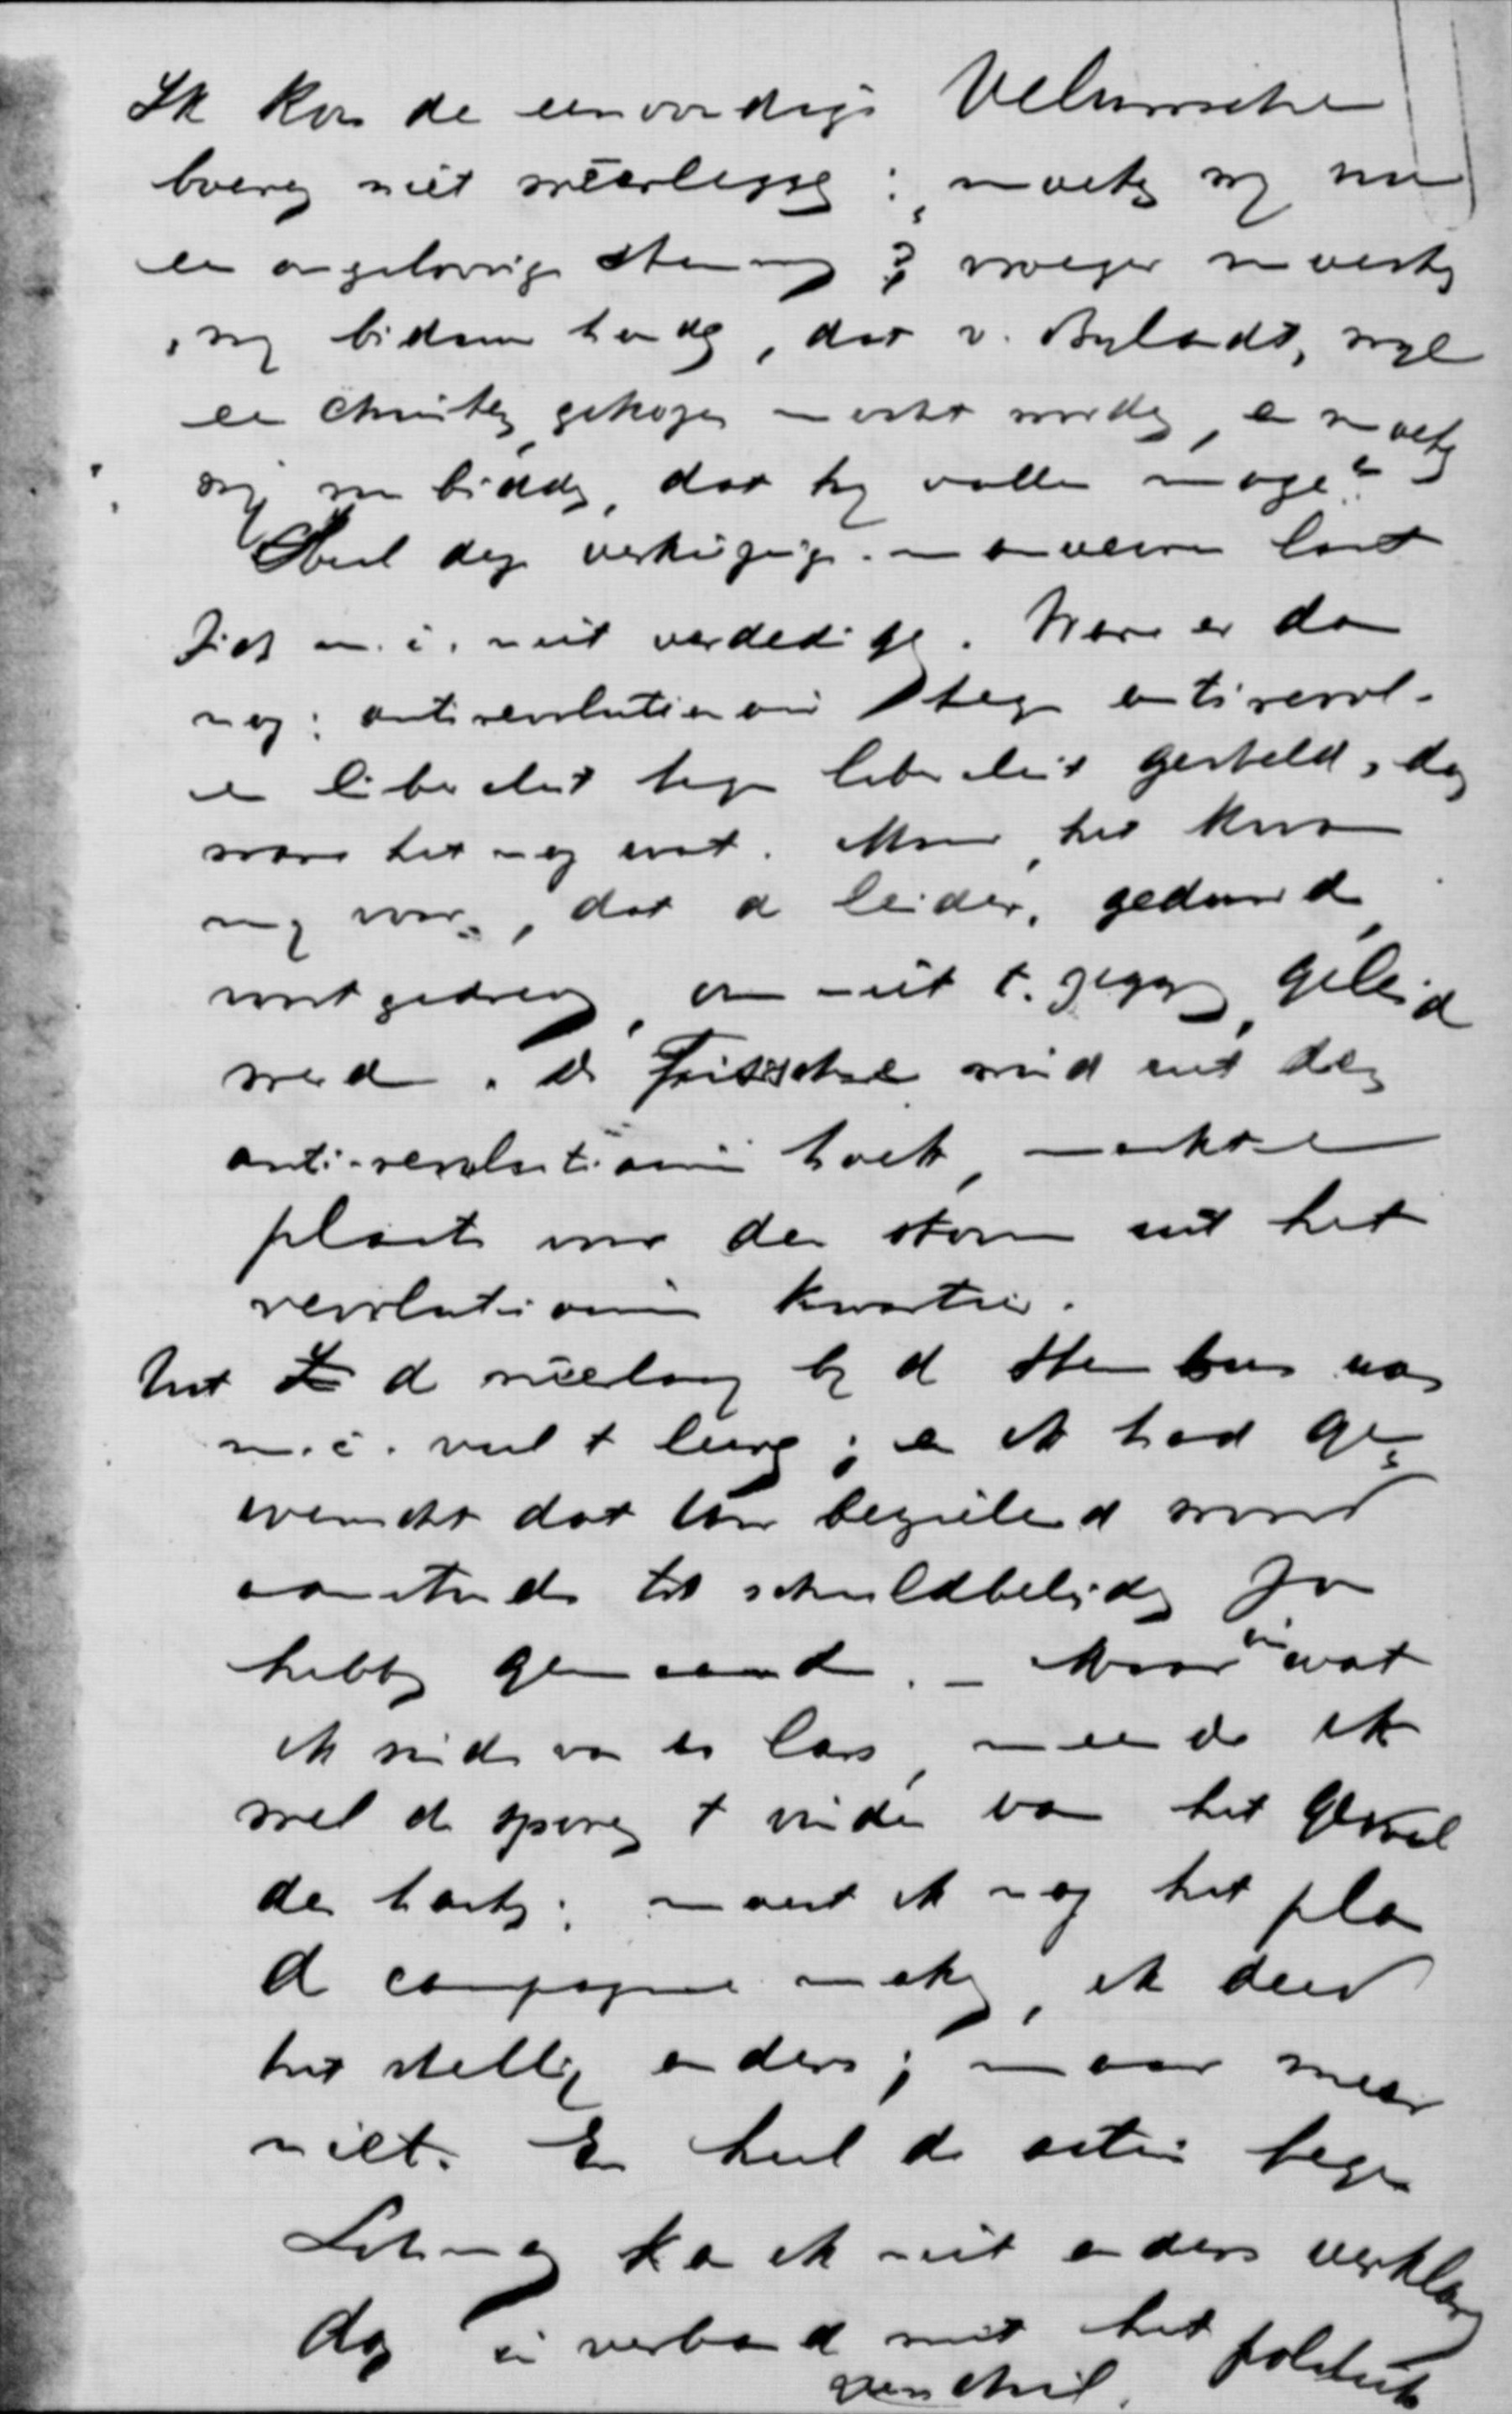 Ik kon de eenvoudige Veluwsche
boeren niet wederleggen: „moeten wij nu
een ongeloovige stemmen? vroeger moesten
wij bidden , dat v. Bylandt, wijl
een Christen, gekozen mocht worden, en moeten
wij nu bidden, dat hij vallen moge?"
Heel deze verkiezings-manoeuvre laat
zich m.i. niet verdedigen. Ware er dan
nog: antirevolutionair tegen antirevol.
en liberalist tegen liberalist gesteld, dan
ware het nog wat. Maar het kwam
mij voor, dat de leider, geduwd,
voortgedreven, om niet te zeggen, geleid
werd. De frissche wind uit den
anti-revolutionairen hoek, maakte
plaats voor den storm uit het
revolutionair kwartier.
Uit de nederlaag bij de stembus was
m.i. veel te leeren; en ik had ge-
wenscht dat Uw bezielend woord
aanstonds tot schuldbelijden zou
hebben gemaand. – Maar in wat
ik sinds van U las, meende ik
wel de sporen te vinden van het gevoel
des harten: moest ik nog het plan
de campagne maken, ik deed
het stellig anders; maar meer
niet. En heel de actie tegen
Lohman kan ik niet anders verklaren
dan in verband met het politiek
verschil.